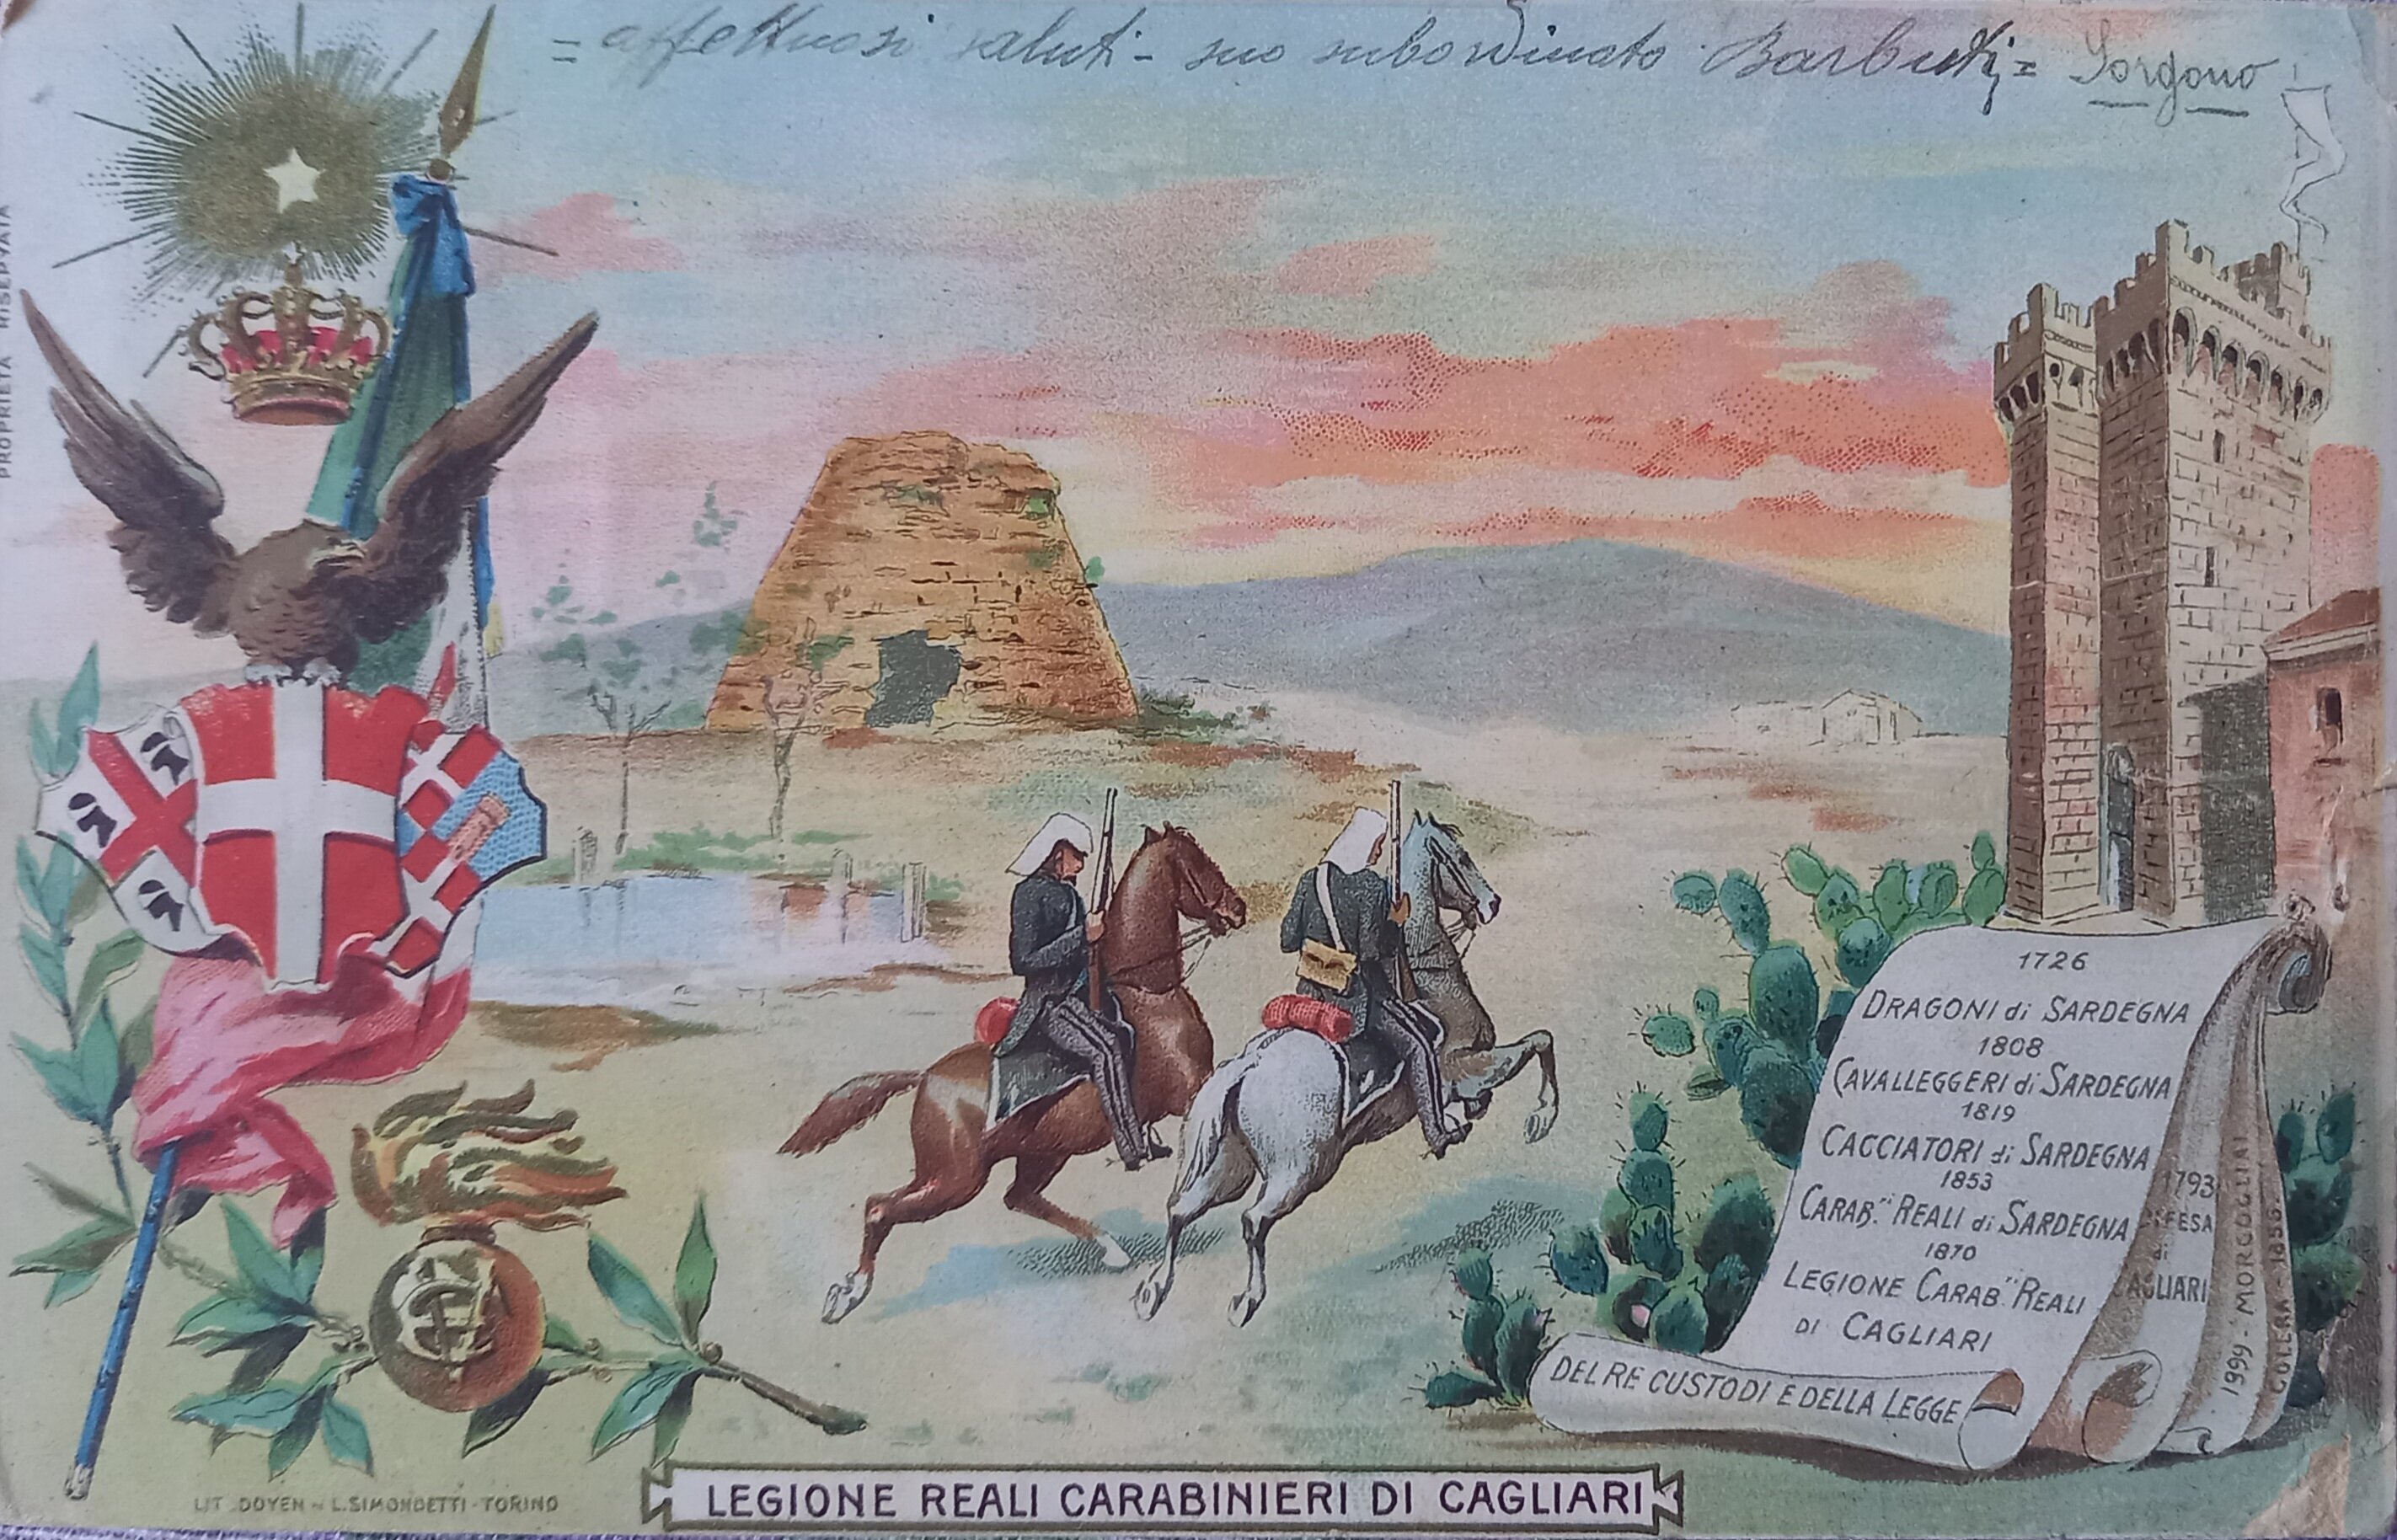 = affettuosi saluti - suo subordinato Barbutij = Sorgono
PROPRIETÀ RISERVATA
1726
DRAGONI di SARDEGNA
1808
CAVALLEGGERI di SARDEGNA
1819
CACCIATORI di SARDEGNA
1853
CARAB.ri REALI di SARDEGNA
1870
LEGIONE CARAB.ri REALI
DI CAGLIARI
DEL RE CUSTODI E DELLA LEGGE
1793
DIFESA
di
CAGLIARI
1899 - MORGOGLIAI
COLERA - 1855.
LIT. DOYEN di L. SIMONDETTI - TORINO
LEGIONE REALI CARABINIERI DI CAGLIARI